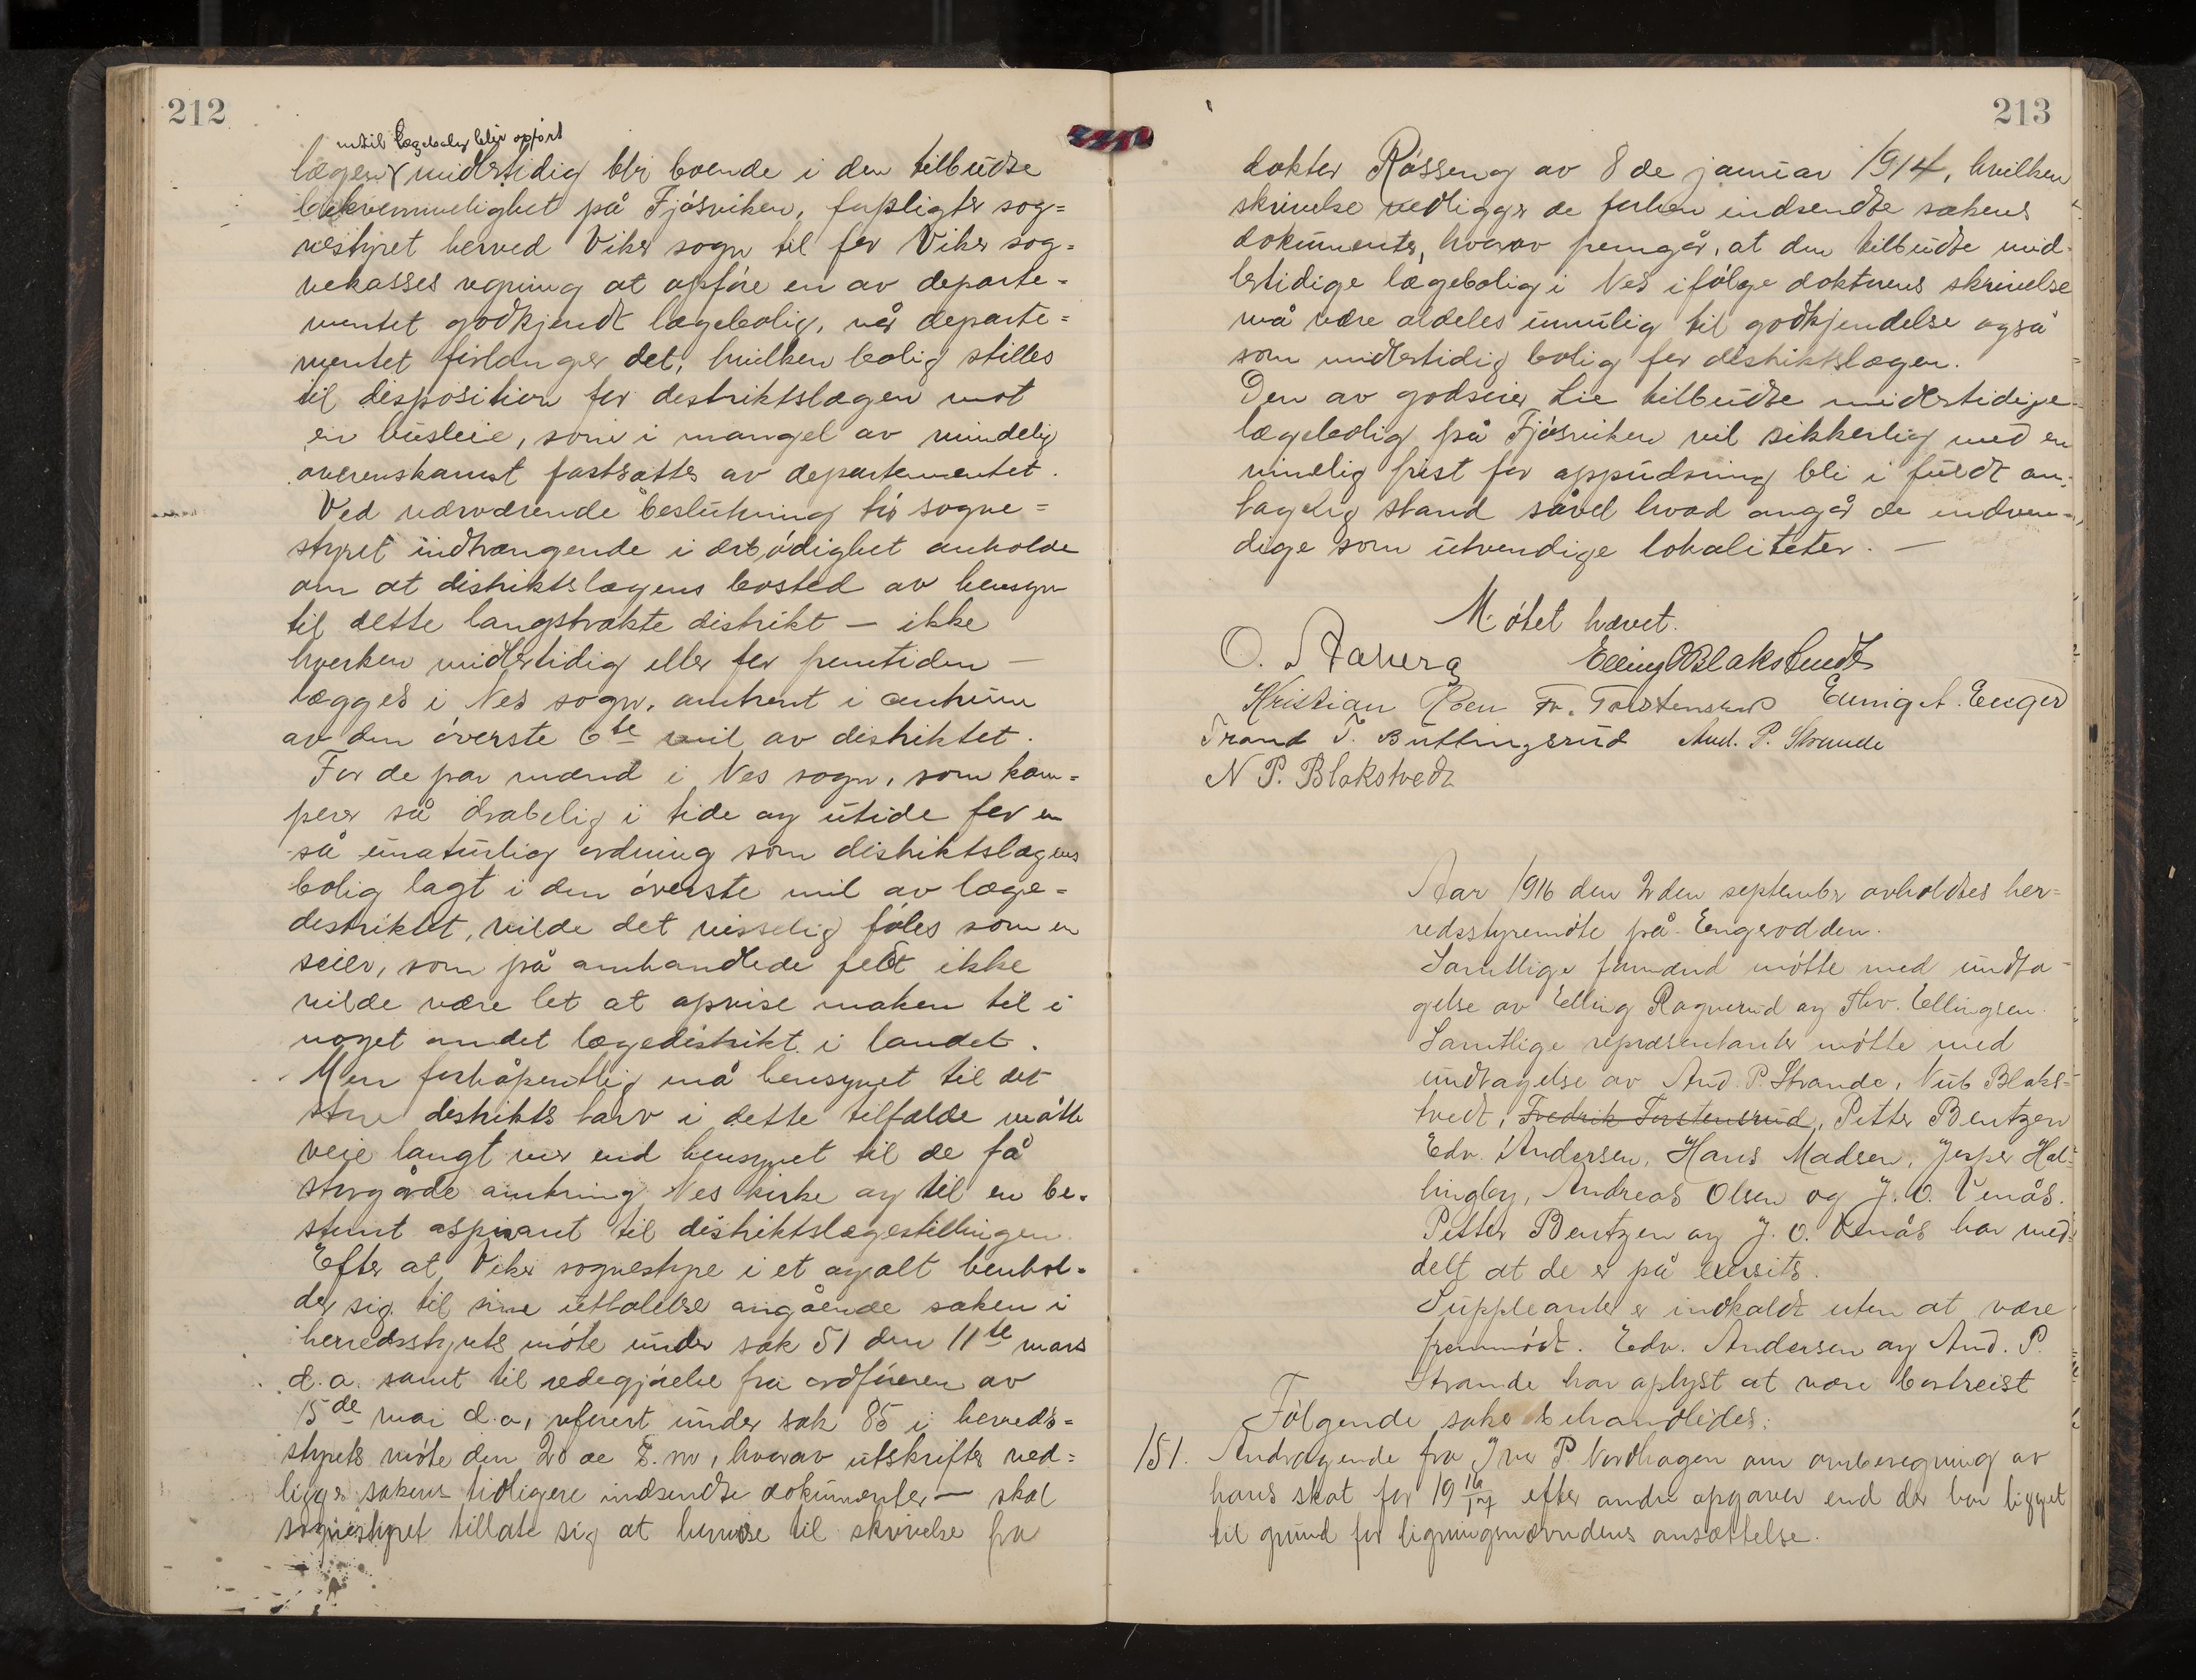 212
indtil lægebolig blir opført
lægen midlertidig bli boende i den tilbudte
bekvemmelighet på Fjósviken, forpligter sog=
nestyret herved Viker sogn til for Viker sog=
nekasses regning at opføre en av departe=
mentet godkjendt lægebolig, når departe=
mentet forlanger det, hvilken bolig stilles
til disposition for distriktslægen mot
en husleie, som i mangel av mindelig
overenskomst fastsættes av departementet.
Ved nærværende beslutning tør sogne=
styret indtrængende i ærbødighet anholde
om at distriktslægens bosted av hensyn
til dette langstrakte distrikt — ikke
hverken midlertidig eller for fremtiden —
lægges i Nes sogn, omtrent i centrum
av den øverste 6te mil av distriktet.
For de par mænd i Nes sogn, som kjæm=
per så drabelig i tide og utide for en
så unaturlig ordning som distriktslægens
bolig lagt i den øverste mil av læge=
distriktet, vilde det visselig føles som en
seier, som på omhandlede felt ikke
vilde være let at opvise maken til i
noget andet lægedistrikt i landet.
Men forhåpentlig må hensynet til det
store distrikts tarv i dette tilfælde måtte
veie langt mer end hensynet til de få
storgårde omkring Nes kirke og til en be=
stemt aspirant til distriktslægestillingen.
Efter at Viker sognestyre i et og alt henhol=
der sig til sine uttalelser angående saken i
herredsstyrets møte under sak 51 den 11te mars
d.a. samt til redegjørelse fra ordføreren av
15de mai d.a, referert under sak 85 i herreds=
styrets møte den 20de s.m, hvorav utskrifter ved=
ligger sakens tidligere indsendte dokumenter — skal
sognestyret tillate sig at henvise til skrivelse fra
213
dokter Røsseng av 8de januar 1914, hvilken
skrivelse vedligger de forhen indsendte sakens
dokumenter, hvorav fremgår, at den tilbudte mid=
lertidige lægebolig i Nes ifølge dokterens skrivelse
må være aldeles umulig til godkjendelse også
som midlertidig bolig for distriktslægen.
Den av godseier Lie tilbudte midlertidige
lægebolig på Fjósviken vil sikkerlig med en
rimelig frist for oppudsning bli i fuldt an=
tagelig stand såvel hvad angår de indven=
dige som utvendige lokaliteter. —
Møtet hævet.
O. Aaberg Elling O Blakstvedt
Kristian Roen Fr. Torstensrud Enming A. Enger
Trond T. Buttingsrud And. P. Strande
N P. Blakstvedt
Aar 1916 den 2den september avholdtes her=
redsstyremøte på Engerodden.
Samtlige formænd møtte med undta=
gelse av Elling Ragnerud og Thv. Ellingsen.
Samtlige repræsentanter møtte med
undtagelse av And. P. Strande, Nub Blaks=
tvedt, Fredrik Torstensrud, Petter Bentzen
Edv. Andersen, Hans Madsen, Jesper Hal=
lingby, Andreas Olsen og J. O. Venås.
Petter Bentzen og J. O. Venås har med=
delt at de er på exersits.
Suppleanter er indkaldt uten at være
fremmødt. Edv. Andersen og And. P.
Strande har oplyst at være bortreist
Følgende saker behandledes:
151. Andragende fra Iver P. Nordhagen om omberegning av
hans skat for 19 16/17 efter andre opgaver end der har ligget
til grund for ligningsnævndens ansættelse.